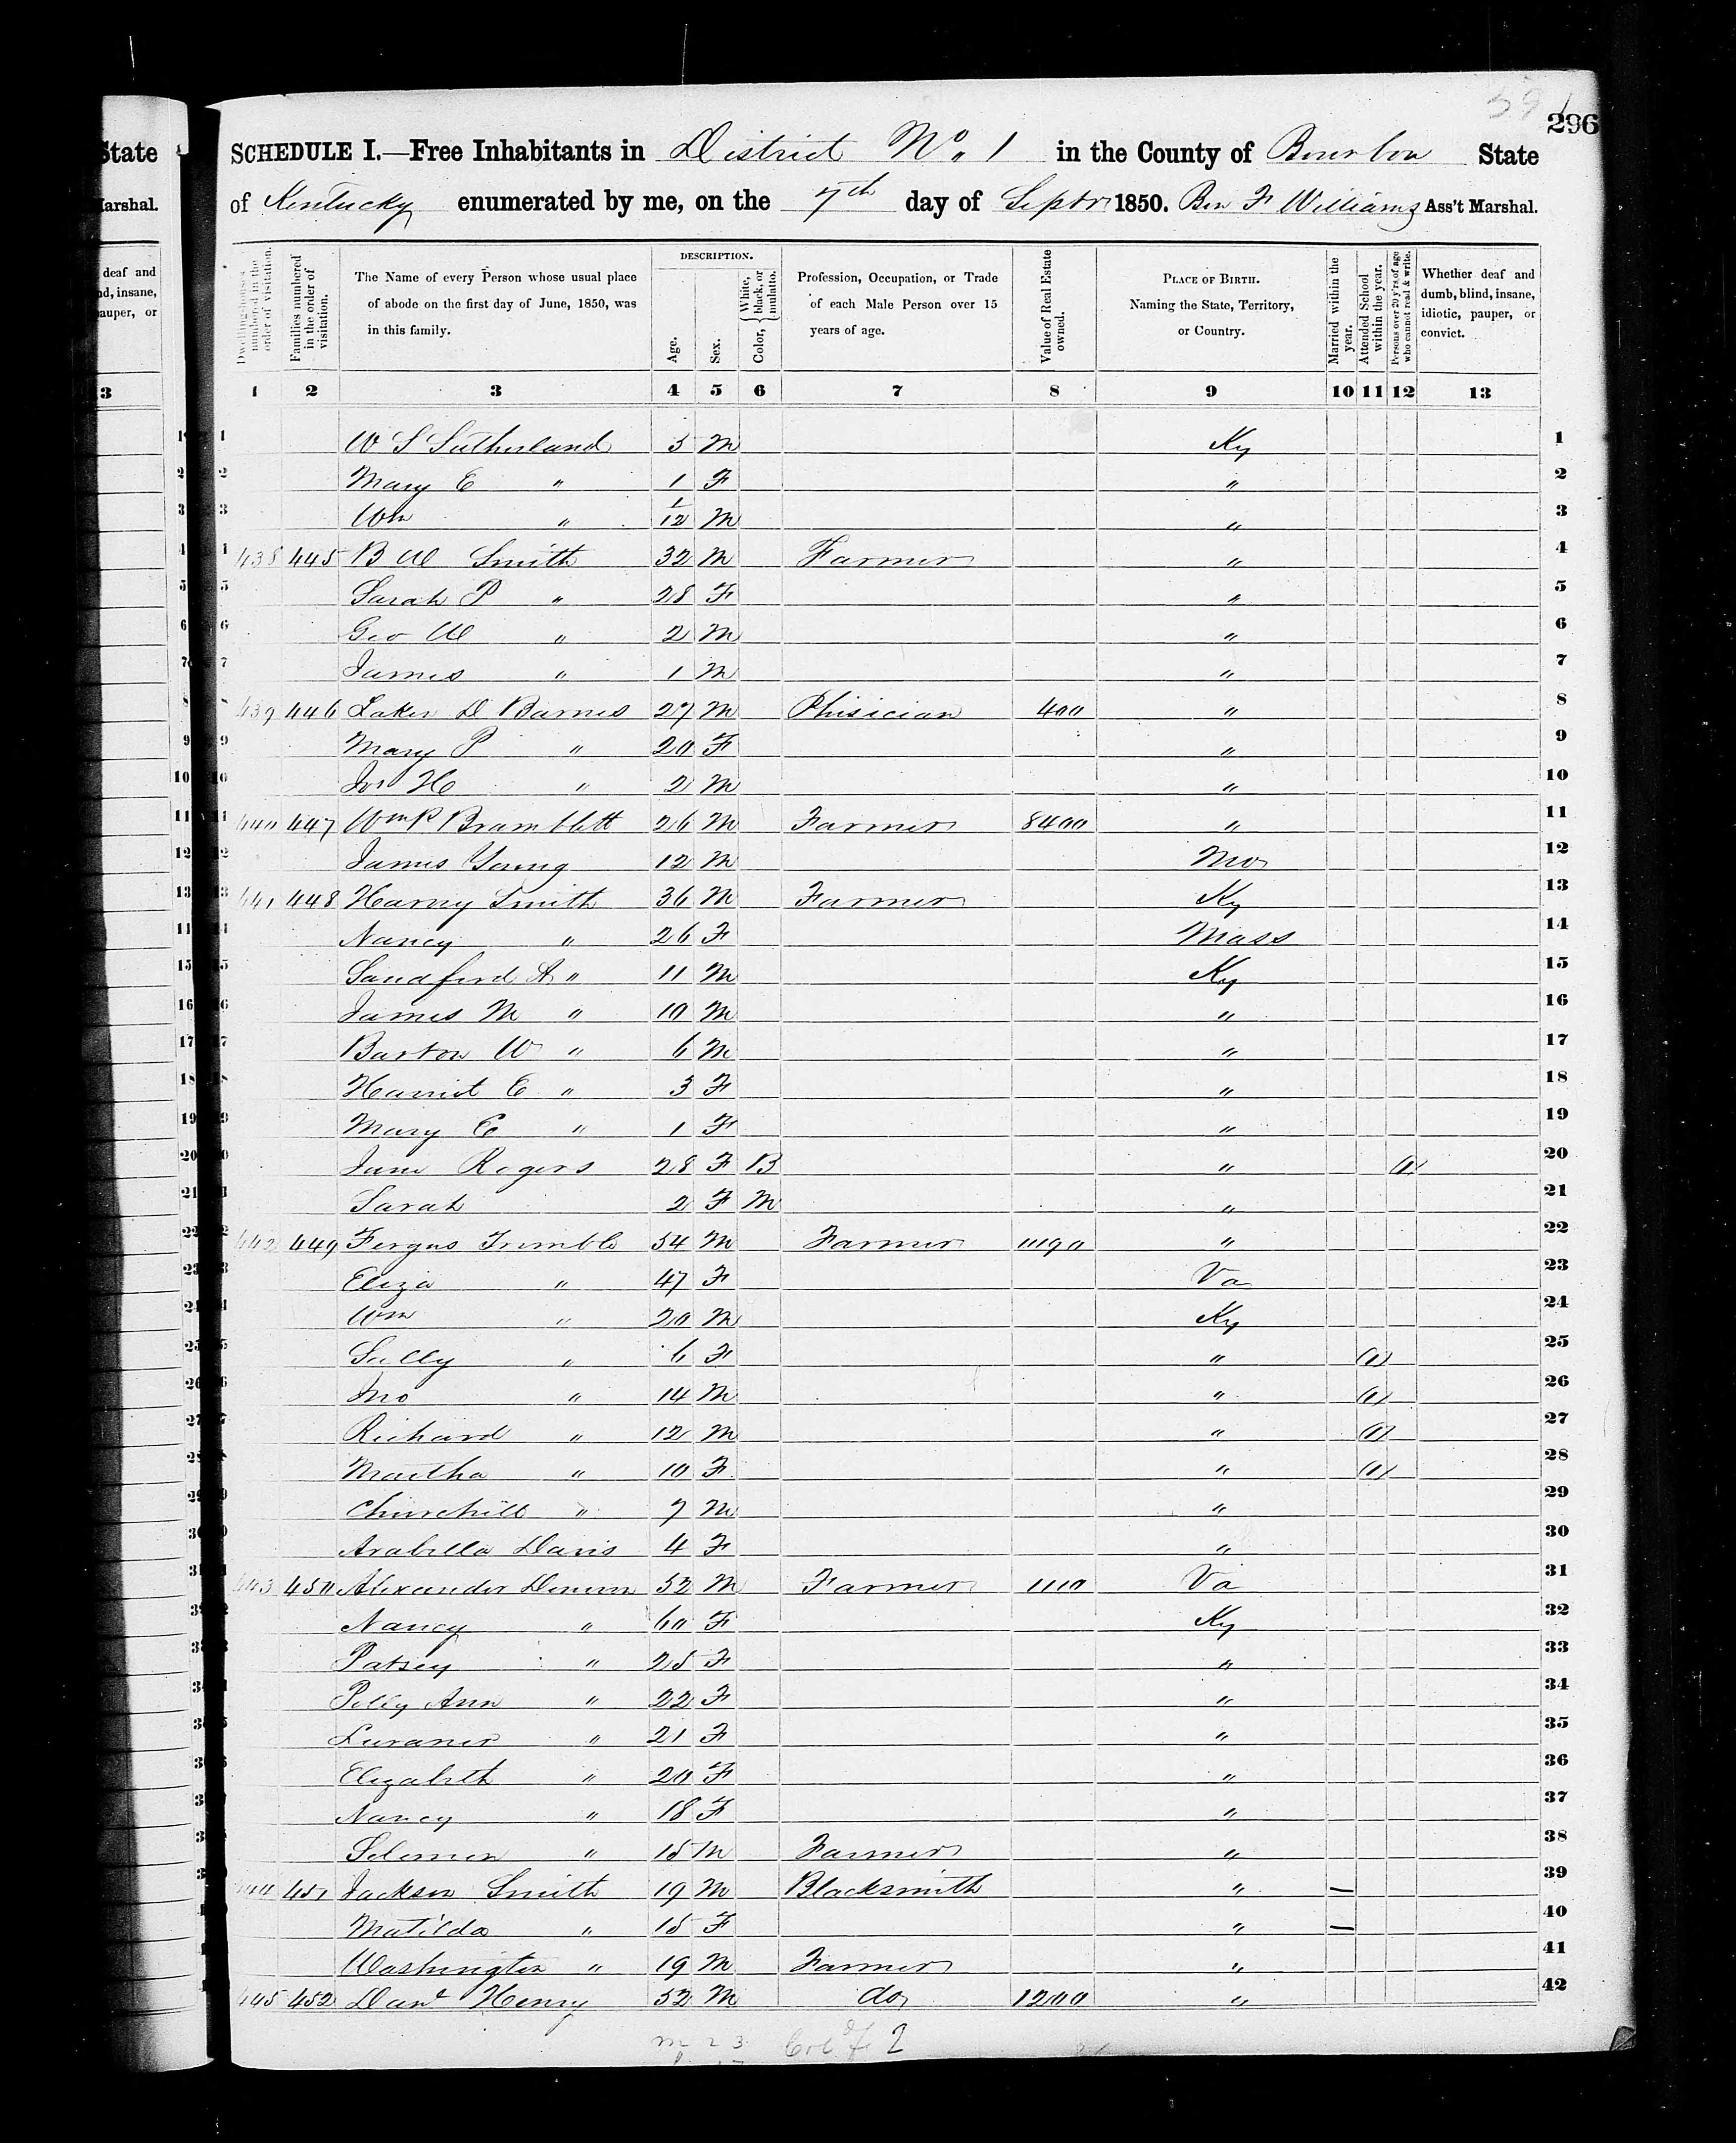 296
SCHEDULE I.—Free Inhabitants in District No. 1 in the County of Bourbon State
of Kentucky enumerated by me, on the 7th day of Septr 1850. Ben F Williams Ass't Marshal.
Dwelling-houses numbered in the order of visitation.
Families numbered in the order of visitation.
The Name of every Person whose usual place of abode on the first day of June, 1850, was in this family.
DESCRIPTION.
Age.
Sex.
Color, { White, black, or mulatto.
Profession, Occupation, or Trade of each Male Person over 15 years of age.
Value of Real Estate owned.
PLACE OF BIRTH. Naming the State, Territory, or Country.
Married within the year.
Attended School within the year.
Persons over 20 y'rs of age who cannot read & write.
Whether deaf and dumb, blind, insane, idiotic, pauper, or convict.
1 2 3 4 5 6 7 8 9 10 11 12 13
1 W S Sutherland 3 M Ky 1
2 Mary E " 1 F " 2
3 Wm " 1/12 M " 3
438 445 B W Smith 32 M Farmer " 4
5 Sarah P " 28 F " 5
6 Geo W " 2 M " 6
7 James " 1 M " 7
439 446 Laken D Barnes 27 M Phisician 400 " 8
9 Mary P " 20 F " 9
10 Jos H " 2 M " 10
440 447 Wm P Bramblett 26 M Farmer 8400 " 11
12 James Young 12 M Mo 12
441 448 Harvey Smith 36 M Farmer Ky 13
14 Nancy " 26 F Mass 14
15 Sandford A " 11 M Ky 15
16 James M " 10 M " 16
17 Barton W " 6 M " 17
18 Harriet E " 3 F " 18
19 Mary E " 1 F " 19
20 Jane Rogers 28 F B " (1) 20
21 Sarah 2 F M " 21
442 449 Fergus Trimble 54 M Farmer 11190 " 22
23 Eliza " 47 F Va 23
24 Wm " 20 M Ky 24
25 Sally " 6 F " (1) 25
26 Jno " 14 M " (1) 26
27 Richard " 12 M " (1) 27
28 Martha " 10 F " (1) 28
29 Churchill " 7 M " 29
30 Arabella Davis 4 F " 30
443 450 Alexander 52 M Farmer 1110 Va 31
32 Nancy " 60 F Ky 32
33 Patsey " 25 F " 33
34 Polly Ann " 22 F " 34
35 Luraner " 21 F " 35
36 Elizabeth " 20 F " 36
37 Nancy " 18 F " 37
38 Solomon " 15 M Farmer " 38
444 451 Jackson Smith 19 M Blacksmith " — 39
40 Matilda " 15 F " — 40
41 Washington " 19 M Farmer " 41
445 452 Danl Henry 52 M do 1200 " 42
m 23 Col f 2